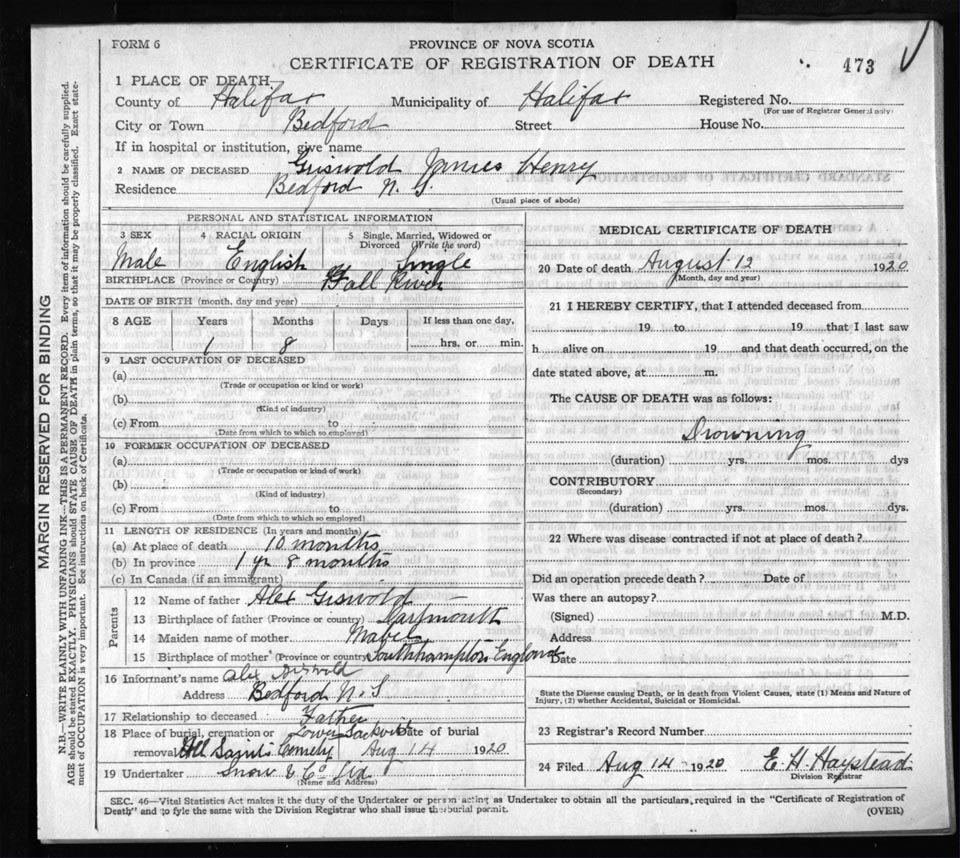 FORM 6
PROVINCE OF NOVA SCOTIA
CERTIFICATE OF REGISTRATION OF DEATH
473
1 PLACE OF DEATH—
County of Halifax Municipality of Halifax Registered No.
(For use of Registrar General only)
City or Town Bedford Street House No.
If in hospital or institution, give name
2 NAME OF DECEASED Griswold James Henry
Residence Bedford N. S.
(Usual place of abode)
PERSONAL AND STATISTICAL INFORMATION
3 SEX 4 RACIAL ORIGIN 5 Single, Married, Widowed or Divorced (Write the word)
Male English Single
BIRTHPLACE (Province or Country) Fall River
DATE OF BIRTH (month, day and year)
8 AGE Years Months Days If less than one day,
1 8 hrs. or min.
9 LAST OCCUPATION OF DECEASED
(a)
(Trade or occupation or kind or work)
(b)
(Kind of industry)
(c) From to
(Date from which to which so employed)
10 FORMER OCCUPATION OF DECEASED
(a)
(Trade or occupation or kind of work)
(b)
(Kind of industry)
(c) From to
(Date from which to which so employed)
11 LENGTH OF RESIDENCE (In years and months)
(a) At place of death 10 months
(b) In province 1 yr 8 months
(c) In Canada (if an immigrant)
Parents
12 Name of father Alex Griswold
13 Birthplace of father (Province or country) Dartmouth
14 Maiden name of mother Mabel
15 Birthplace of mother (Province or country) Southhampton England
16 Informant's name Alex Griswold
Address Bedford N. S
17 Relationship to deceased Father
18 Place of burial, cremation or removal Lower Sackville All Saints Cemetery
Date of burial Aug 14 1920
19 Undertaker Snow & Co Ltd
(Name and Address)
MEDICAL CERTIFICATE OF DEATH
20 Date of death August 12 1920
(Month, day and year)
21 I HEREBY CERTIFY, that I attended deceased from
19 to 19 that I last saw
h alive on 19 and that death occurred, on the
date stated above, at m.
The CAUSE OF DEATH was as follows:
Drowning
(duration) yrs. mos. dys
CONTRIBUTORY
(Secondary)
(duration) yrs. mos. dys.
22 Where was disease contracted if not at place of death?
Did an operation precede death? Date of
Was there an autopsy?
(Signed) M.D.
Address
Date
State the Disease causing Death, or in death from Violent Causes, state (1) Means and Nature of
Injury, (2) whether Accidental, Suicidal or Homicidal.
23 Registrar's Record Number
24 Filed Aug 14 1920 E. H. Haystead
Division Registrar
SEC. 46—Vital Statistics Act makes it the duty of the Undertaker or person acting as Undertaker to obtain all the particulars, required in the "Certificate of Registration of
Death" and to fyle the same with the Division Registrar who shall issue the burial permit.
(OVER)
MARGIN RESERVED FOR BINDING
N.B.—WRITE PLAINLY WITH UNFADING INK—THIS IS A PERMANENT RECORD. Every item of information should be carefully supplied.
AGE should be stated EXACTLY. PHYSICIANS should STATE CAUSE OF DEATH in plain terms, so that it may be properly classified. Exact statement of OCCUPATION is very important. See instructions on back of Certificate.